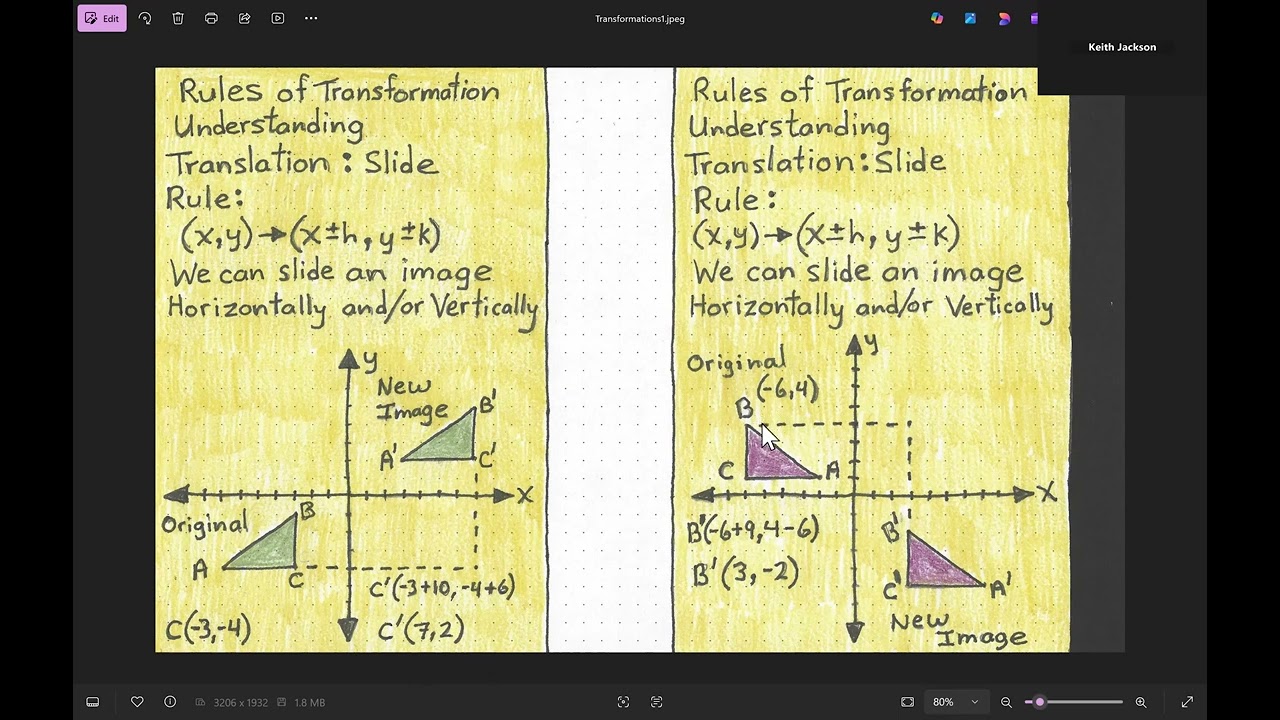 Edit
Transformations1.jpeg
Keith Jackson
Rules of Transformation
Understanding
Translation : Slide
Rule:
(x,y)→(x±h, y±k)
We can slide an image
Horizontally and/or Vertically
y
New
Image
B'
A'
C'
x
Original
B
A
C
C'(-3+10, -4+6)
C(-3,-4)
C'(7,2)
Rules of Transformation
Understanding
Translation: Slide
Rule:
(x,y)→(x±h, y±k)
We can slide an image
Horizontally and/or Vertically
y
Original
(-6,4)
B
C
A
x
B'(-6+9, 4-6)
B'
B'(3, -2)
C'
A'
New
Image
3206 x 1932
1.8 MB
80%